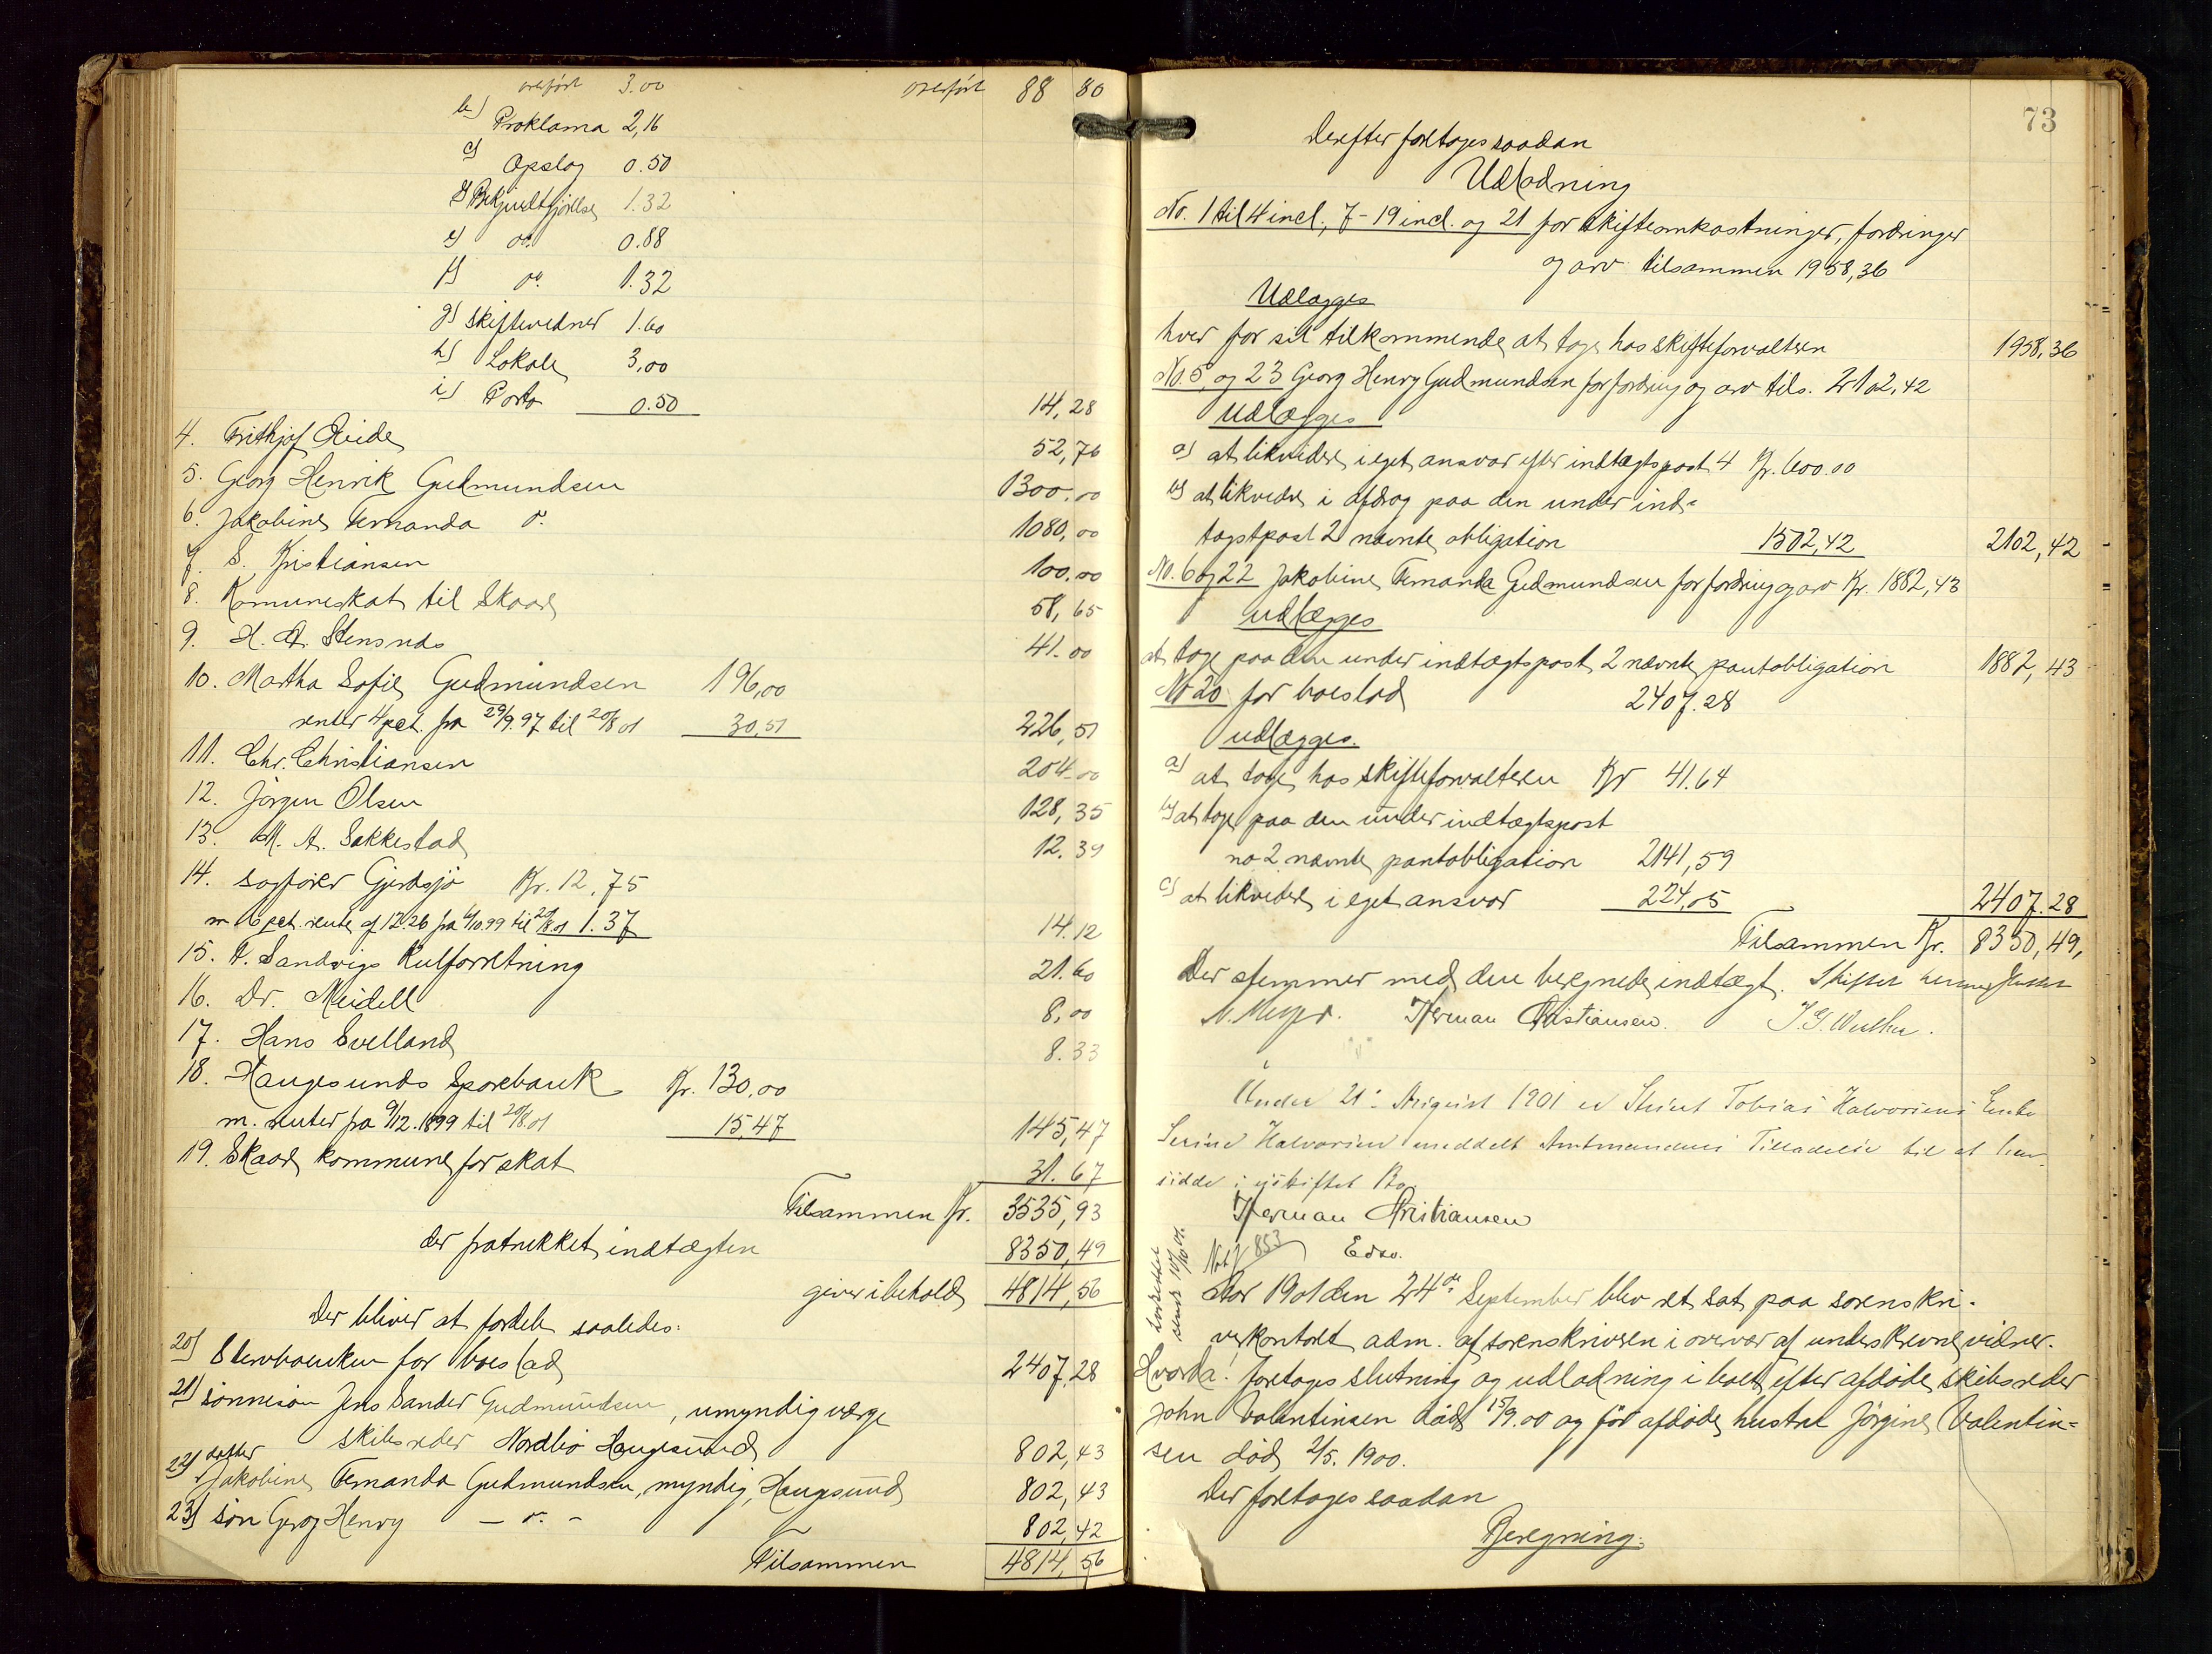 overført 3.00 overført 88 80
b) Proklama 2,16
c) Opslag 0.50
d) Bekjendtgjörelse 1.32
e) do. 0.88
f) do. 1.32
g) skiftevidner 1.60
h) Lokale 3,00
i) Porto 0.50 14,28
4. Frithjof Eide 52,76
5. Georg Henrik Gudmundsen 1300.00
6. Jakobine Fernanda do. 1080,00
7. S. Kristiansen 100.00
8. Komuneskat til Skaare 58,65
9. H. A. Stensnæs 41.00
10. Martha Sofie Gudmundsen 196,00
renter 4 pct. fra 29/9.97 til 20/8 01 30,51 226,51
11. Chr. Christiansen 204.00
12. Jörgen Olsen 128,35
13. M. A. Sakkestad 12.39
14. sagförer Gjerdsjö Kr. 12,75
m 6 pct. rente af 12.26 fra 4/10 99 til 20/8.01 1.37 14.12
15. A. Sandvigs Kulforretning 21.60
16. Dr. Meidell 8,00
17. Hans Svelland 8.33
18. Haugesunds Sparebank Kr. 130,00
m. renter fra 9/12.1899 til 20/8.01 15,47 145,47
19. Skaare kommune for skat 31.67
Tilsammen Kr. 3535,93
der fratrukket indtægten 8350,49
giver i behold 4814,56
Der bliver at fordele saaledes:
20) Stervboenken for boeslod 2407,28
21) sönnesön Jens Sander Gudmundsen, umyndig værge
skibsreder Nordbö Haugesund 802,43
22) datter
Jakobine Fernanda Gudmundsen, myndig, Haugesund 802,43
23) sön Georg Henry — do. — 802,42
Tilsammen 4814,56
73
Derefter foretages saadan
Udlodning
No. 1 til 4 incl., 7-19 incl. og 21 for skifteomkostninger, fordringer
og arv tilsammen 1958,36
Udlægges
hver for sit tilkommende at tage hos skifteforvalteren 1958,36
No. 5 og 23 Georg Henry Gudmundsen for fordring og arv tils. 2102,42
Udlægges
a) at likvidere i eget ansvar efter indtægtspost 4 Kr. 600.00
b) at likvidere i afdrag paa den under ind-
tægtspost 2 nævnte obligation 1502,42 2102,42
No. 6 og 22 Jakobine Fernanda Gudmundsen for fordring og arv Kr. 1882,43
udlægges
at tage paa den under indtægtspost 2 nævnte pantobligation 1882,43
No 20 for boeslod 2407.28
udlægges.
a) at tage hos skifteforvalteren Kr 41.64
b) at tage paa den under indtægtspost
no 2 nævnte pantobligation 2141,59
c) at likvidere i eget ansvar 224,05 2407.28
Tilsammen Kr. 8350,49,
Der stemmer med den beregnede indtægt. Skiftet hermed sluttet
N. Meyer. Herman Kristiansen.
Under 21. August 1901 er Tobias Halvorsens Enke
Serine Halvorsen meddelt Amtmandens Tilladelse til at hen-
sidde i uskiftet Bo.
Herman Kristiansen
Edsv.
Not J 853
sendt 10/10 01.
Aar 1901 den 24de September blev ret sat paa sorenskri-
verkontoret adm. af sorenskriveren i overvær af underskrevne vidner.
Hvorda! foretages slutning og udlodning i boet efter afdöde skibsreder
John Valentinsen död 15/9.00 og för afdöde hustru Jörgine Valentin=
sen död 2/5. 1900.
Der foretages saadan
Beregning: